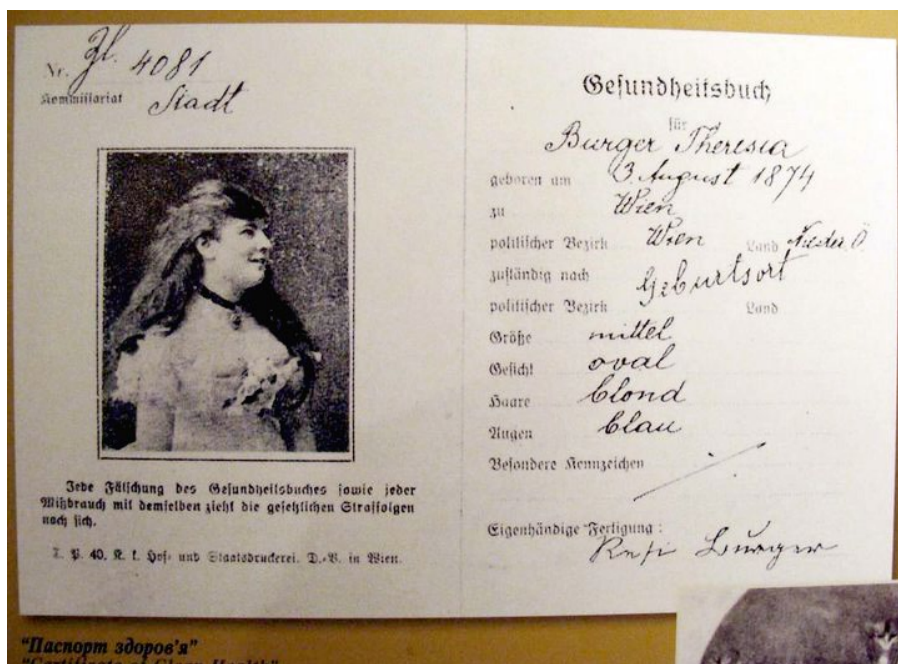 Nr. Zl. 4081
Kommissariat Stadt
Jede Fälschung des Gesundheitsbuches sowie jeder
Mißbrauch mit demselben zieht die gesetzlichen Straffolgen
nach sich.
T. P. 40. K. k. Hof- und Staatsdruckerei. D.-V. in Wien.
Gesundheitsbuch
für
Burger Theresia
geboren am 3 August 1874
zu Wien
politischer Bezirk Wien Land Nieder Ö.
zuständig nach Geburtsort
politischer Bezirk Land
Größe mittel
Gesicht oval
Haare blond
Augen blau
Besondere Kennzeichen
Eigenhändige Fertigung:
Resi Burger
"Паспорт здоров'я"
"Certificate of Clean Health"